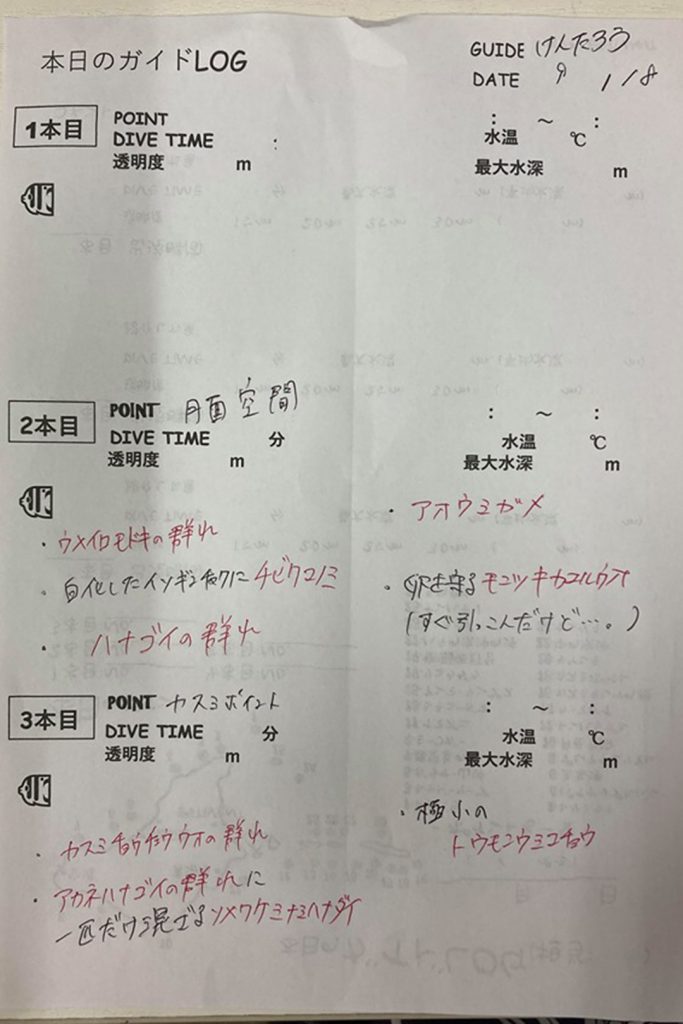 本日のガイドLOG
GUIDE けんたろう
DATE 9 1/8
1本目
POINT
DIVE TIME :
透明度 m
: ～ :
水温 ℃
最大水深 m
2本目
POINT 月面空間
DIVE TIME 分
透明度 m
: ～ :
水温 ℃
最大水深 m
・ウメイロモドキの群れ
・白化したイソギンチャクにチビクマノミ
・ハナゴイの群れ
・アオウミガメ
・卵を守るモンツキカエルウオ
(すぐ引っこんだけど…。)
3本目
POINT カスミポイント
DIVE TIME 分
透明度 m
: ～ :
水温 ℃
最大水深 m
・カスミチョウチョウウオの群れ
・アカネハナゴイの群れに
一匹だけ混ざるソメワケミナミハナダイ
・極小の
トウモンウミコチョウ